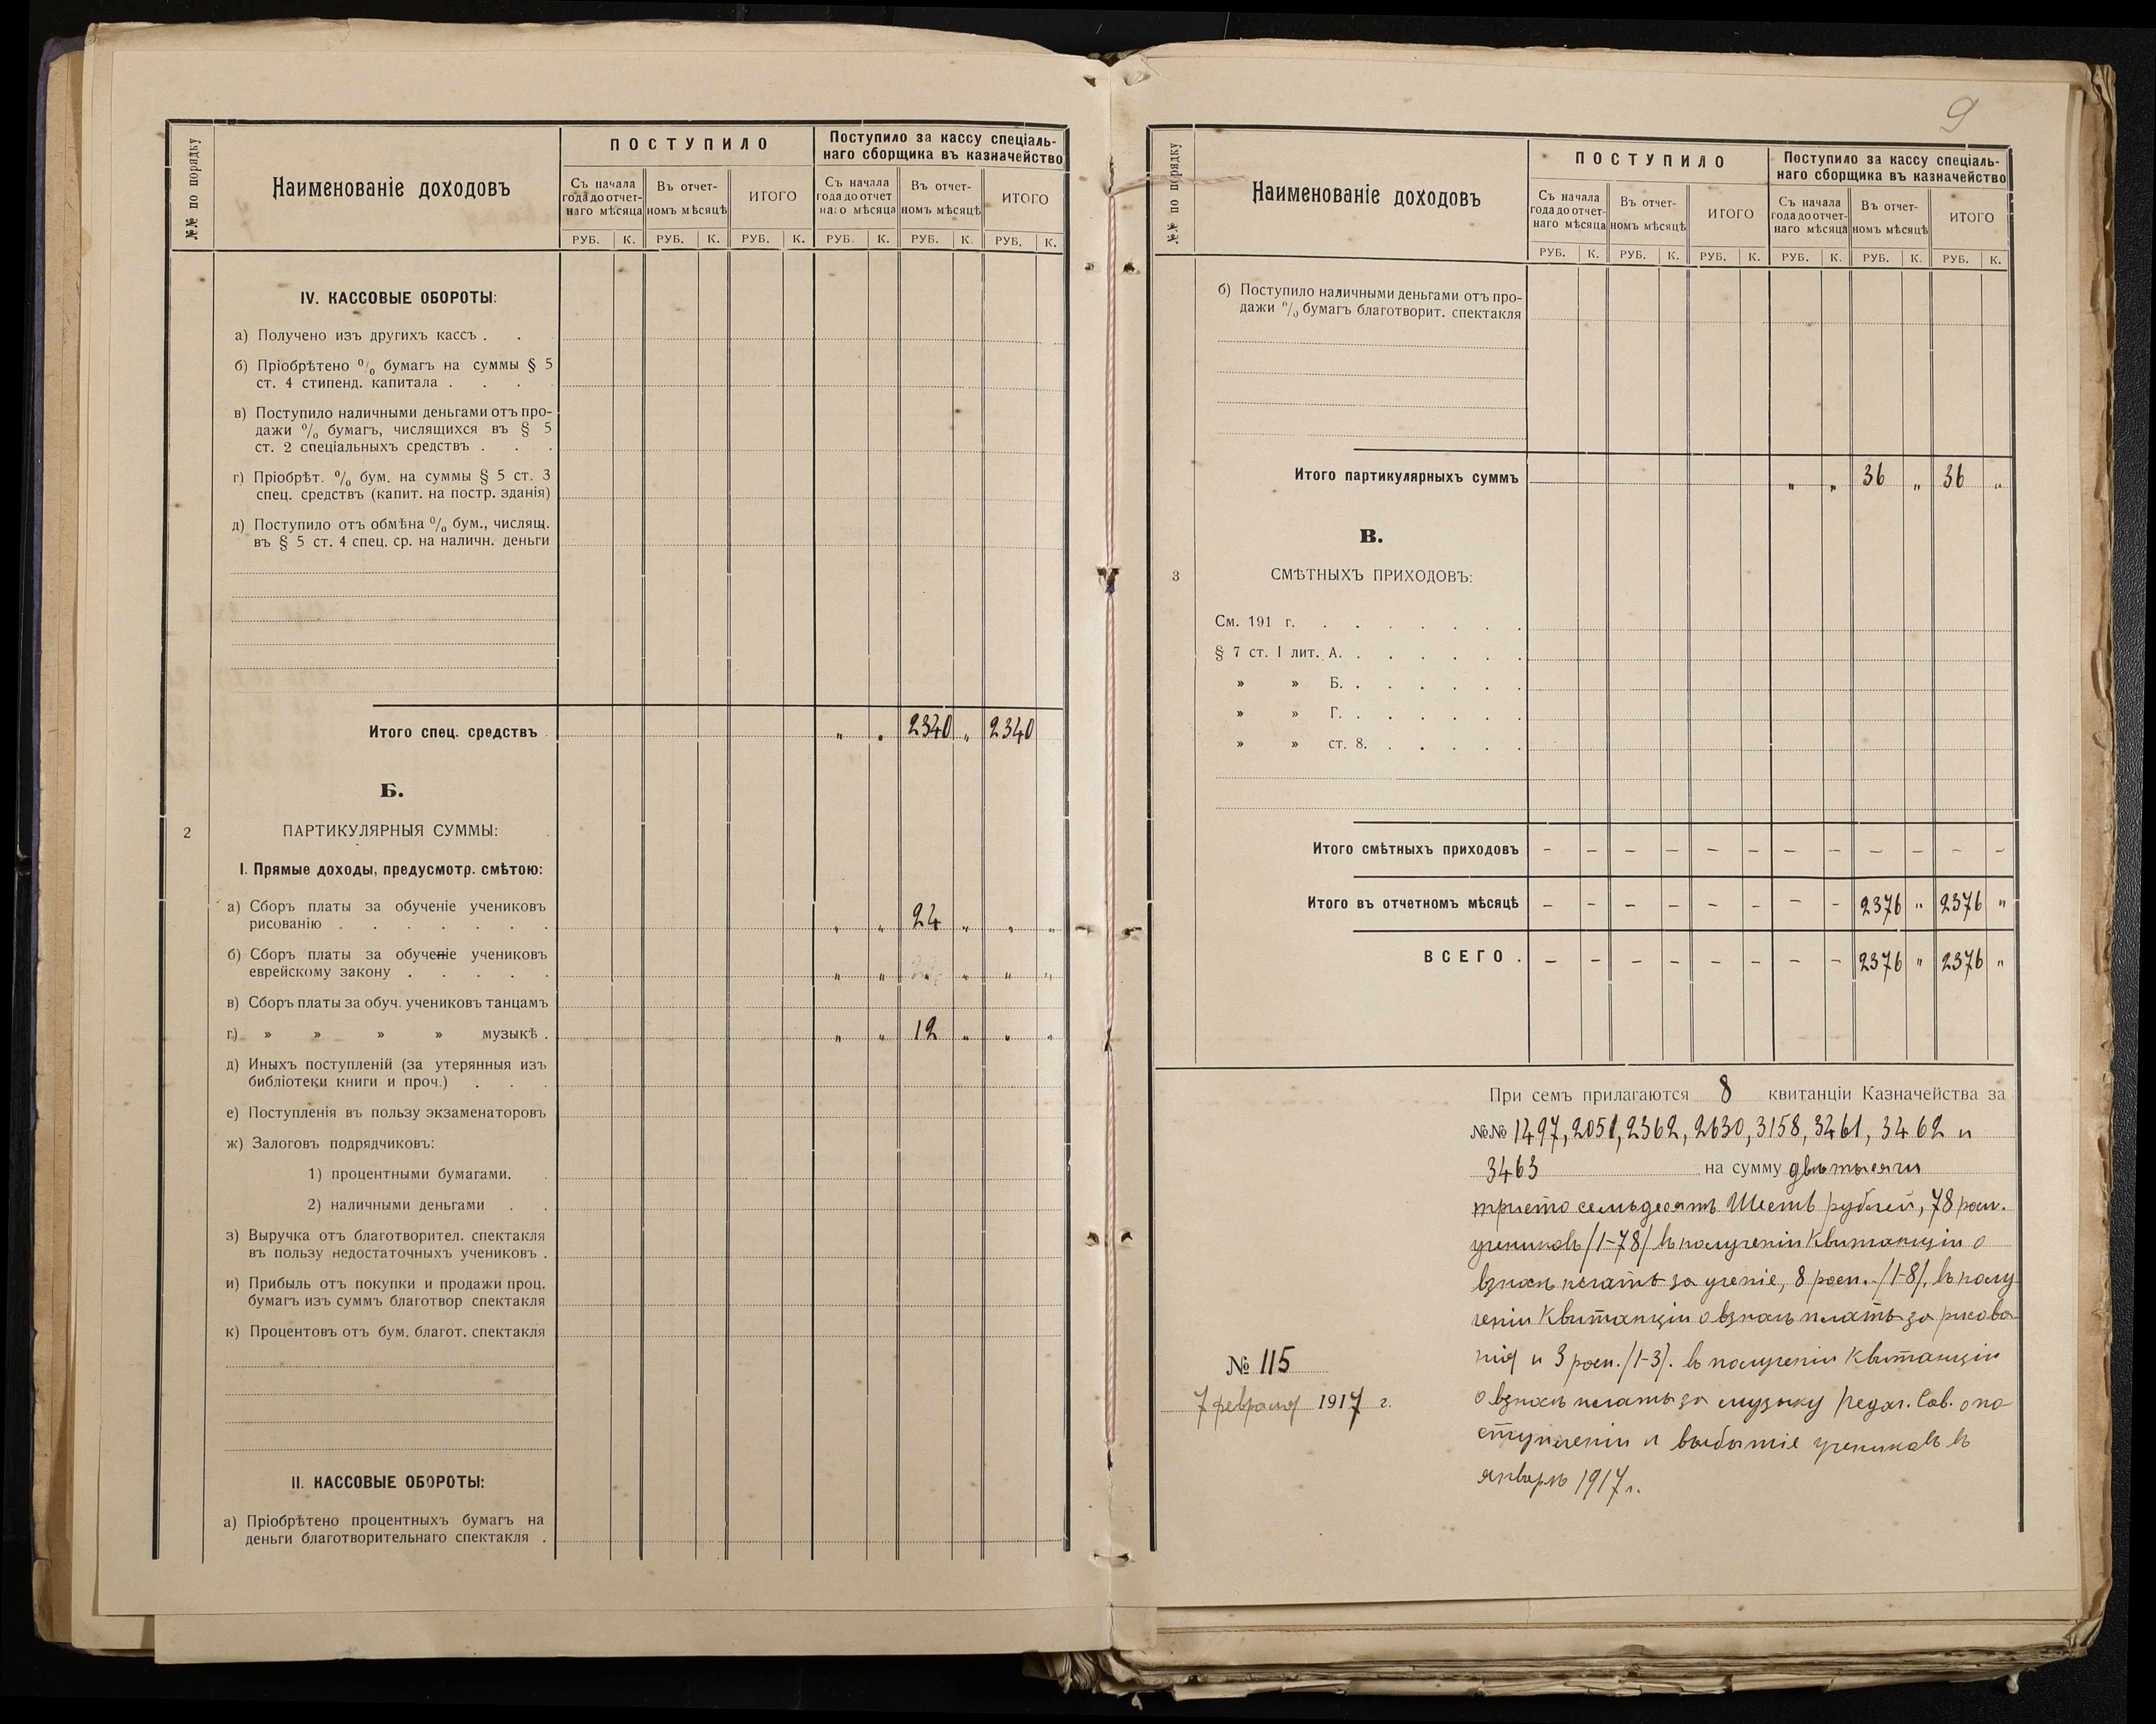 №№ по порядку
Наименованіе доходовъ
ПОСТУПИЛО
Поступило за кассу спеціаль-
наго сборщика въ казначейство
Съ начала
года до отчет-
наго мѣсяца
Въ отчет-
номъ мѣсяцѣ
ИТОГО
Съ начала
года до отчет
наго мѣсяца
Въ отчет-
номъ мѣсяцѣ
ИТОГО
РУБ. К. РУБ. К. РУБ. К. РУБ. К. РУБ. К. РУБ. К.
IV. КАССОВЫЕ ОБОРОТЫ:
а) Получено изъ другихъ кассъ . .
б) Пріобрѣтено % бумагъ на суммы § 5
ст. 4 стипенд. капитала . . . .
в) Поступило наличными деньгами отъ про-
дажи % бумагъ, числящихся въ § 5
ст. 2 спеціальныхъ средствъ . . .
г) Пріобрѣт. % бум. на суммы § 5 ст. 3
спец. средствъ (капит. на постр. зданія)
д) Поступило отъ обмѣна % бум., числящ.
въ § 5 ст. 4 спец. ср. на наличн. деньги
Итого спец. средствъ . „ „ 2340 „ 2340
Б.
2 ПАРТИКУЛЯРНЫЯ СУММЫ:
I. Прямые доходы, предусмотр. смѣтою:
а) Сборъ платы за обученіе учениковъ
рисованію . . . . . . . „ „ 24 „ „ „
б) Сборъ платы за обученіе учениковъ
еврейскому закону . . . . . „ „ „ „ „ „
в) Сборъ платы за обуч. учениковъ танцамъ
г) » » » » музыкѣ . „ „ 12 „ „ „
д) Иныхъ поступленій (за утерянныя изъ
библіотеки книги и проч.) . . .
е) Поступленія въ пользу экзаменаторовъ
ж) Залоговъ подрядчиковъ:
1) процентными бумагами. .
2) наличными деньгами . .
з) Выручка отъ благотворител. спектакля
въ пользу недостаточныхъ учениковъ .
и) Прибыль отъ покупки и продажи проц.
бумагъ изъ суммъ благотвор спектакля
к) Процентовъ отъ бум. благот. спектакля
II. КАССОВЫЕ ОБОРОТЫ:
а) Пріобрѣтено процентныхъ бумагъ на
деньги благотворительнаго спектакля .
9
№№ по порядку
Наименованіе доходовъ
ПОСТУПИЛО
Поступило за кассу спеціаль-
наго сборщика въ казначейство
Съ начала
года до отчет-
наго мѣсяца
Въ отчет-
номъ мѣсяцѣ
ИТОГО
Съ начала
года до отчет-
наго мѣсяца
Въ отчет-
номъ мѣсяцѣ
ИТОГО
РУБ. К. РУБ. К. РУБ. К. РУБ. К. РУБ. К. РУБ. К.
б) Поступило наличными деньгами отъ про-
дажи % бумагъ благотворит. спектакля
Итого партикулярныхъ суммъ „ „ 36 „ 36 „
В.
3 СМѢТНЫХЪ ПРИХОДОВЪ:
См. 191 г. . . . . . . . .
§ 7 ст. I лит. А. . . . . . .
» » Б. . . . . . .
» » Г. . . . . . .
» » ст. 8. . . . . .
Итого смѣтныхъ приходовъ – – – – – – – – – – – –
Итого въ отчетномъ мѣсяцѣ – – – – – – – – 2376 „ 2376 „
ВСЕГО . – – – – – – – – 2376 „ 2376 „
При семъ прилагаются 8 квитанціи Казначейства за
№№ 1497, 2051, 2362, 2630, 3158, 3461, 3462 и
3463 на сумму двѣ тысячи
триста семьдесятъ Шесть рублей, 78 росп.
учениковъ /1-78/ въ полученіи Квитанціи о
взносѣ платы за ученіе, 8 росп. /1-8/. въ полу
ченіи Квитанціи о взносѣ платы за рисова
нія и 3 росп. /1-3/. въ полученіи Квитанціи
о взносѣ платы за музыку Педаг. Сов. о по
ступленіи и выбытіе учениковъ въ
январѣ 1917 г.
№ 115
7 февраля 1917 г.